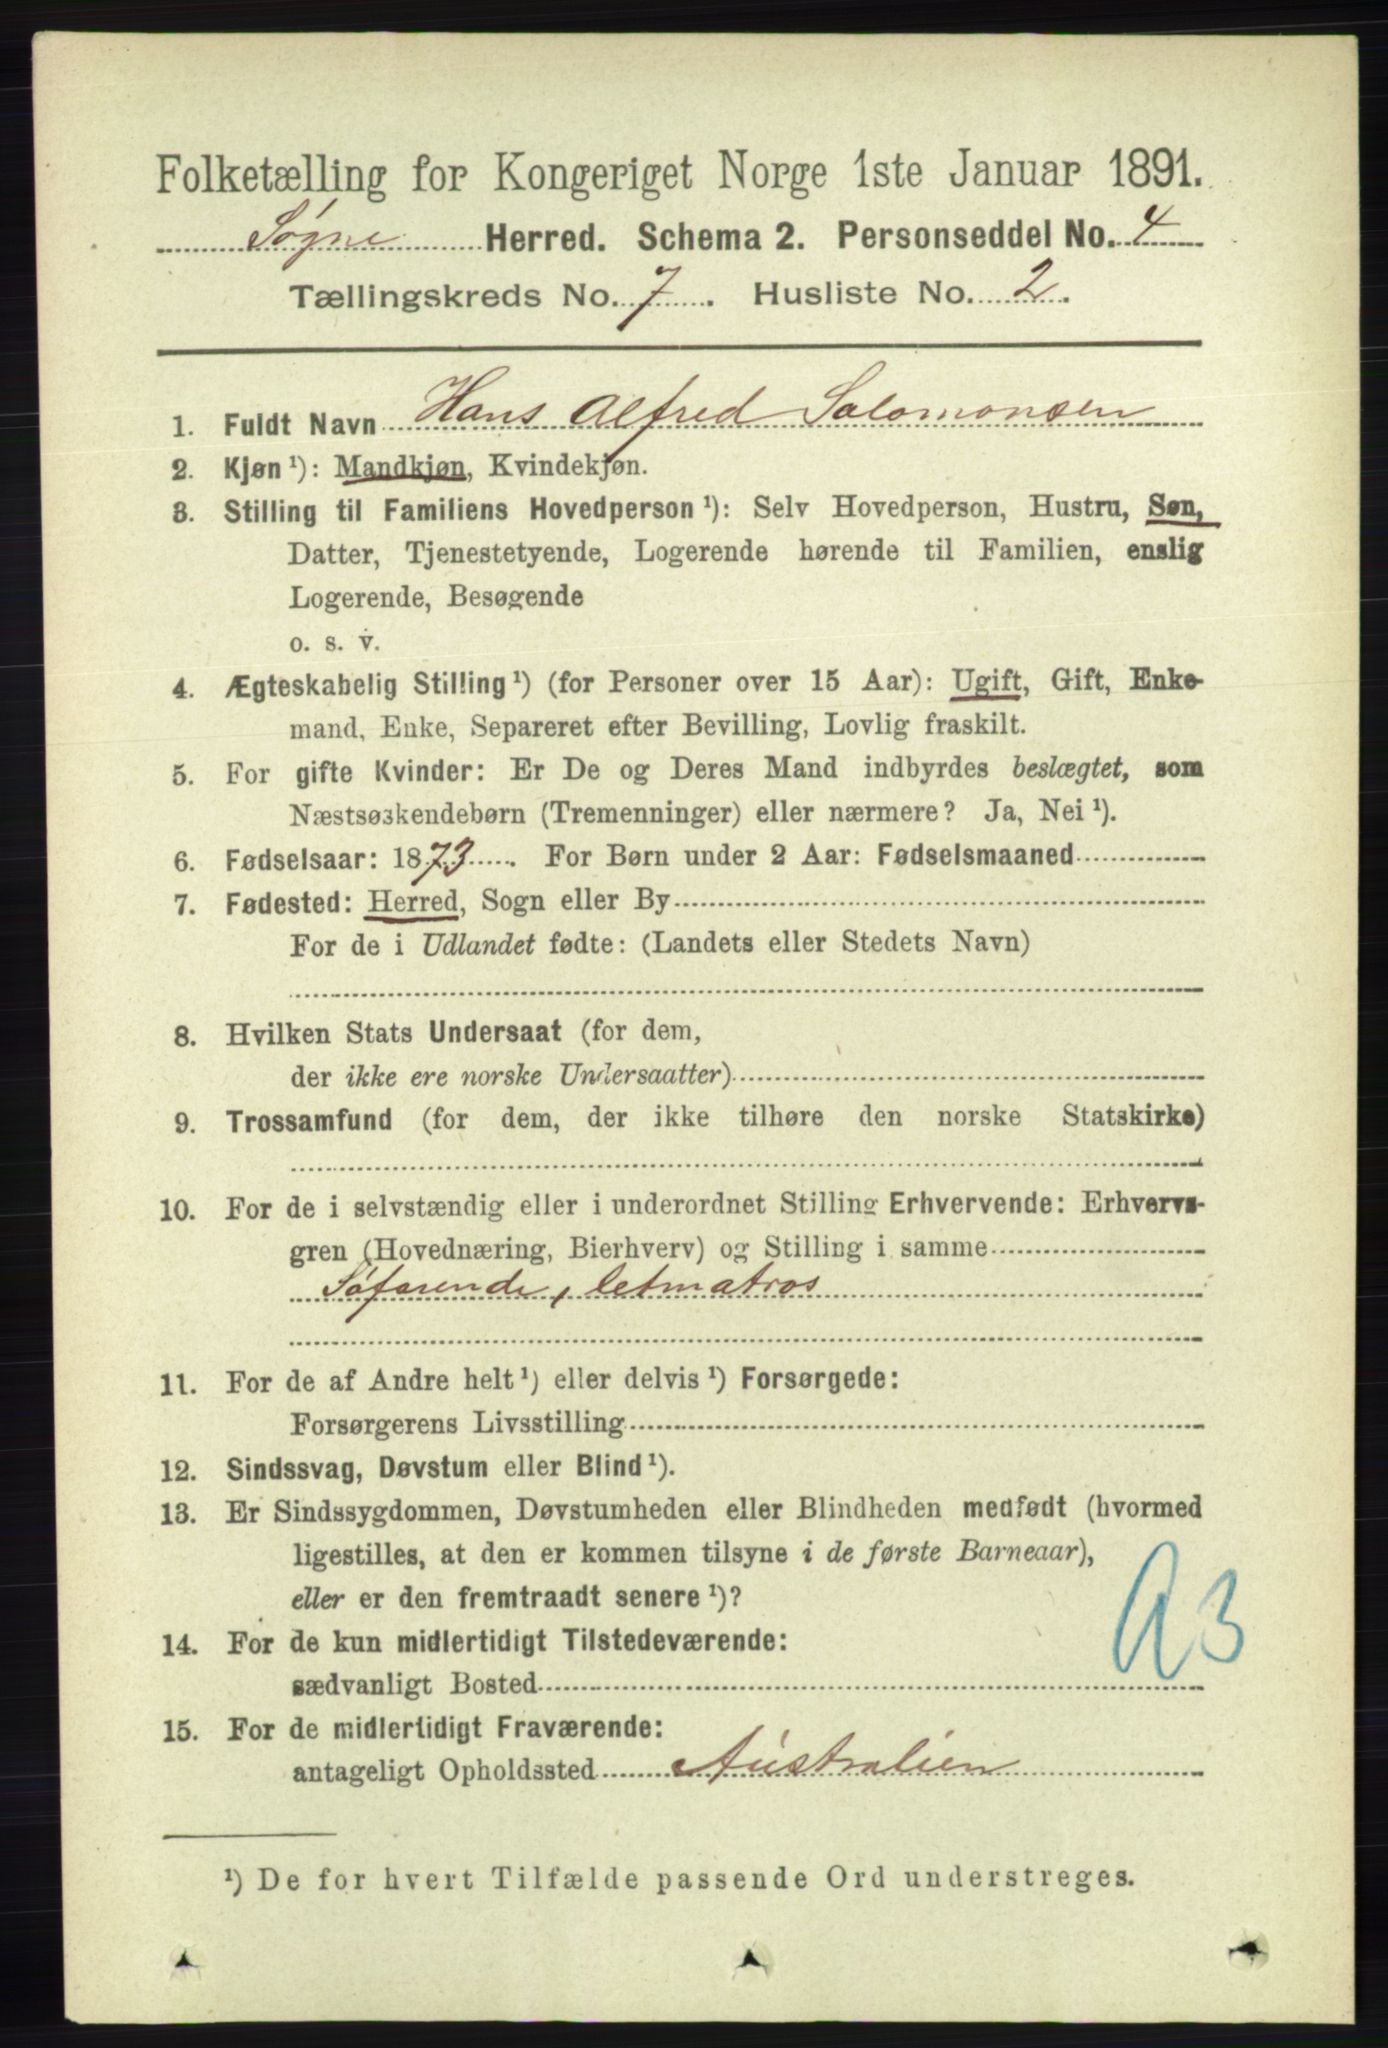 Folketælling for Kongeriget Norge 1ste Januar 1891.
Søgne Herred. Schema 2. Personseddel No. 4
Tællingskreds No. 7. Husliste No. 2.
1. Fuldt Navn Hans Alfred Salomonsen
2. Kjøn ¹): Mandkjøn, Kvindekjøn.
3. Stilling til Familiens Hovedperson ¹): Selv Hovedperson, Hustru, Søn,
Datter, Tjenestetyende, Logerende hørende til Familien, enslig
Logerende, Besøgende
o. s. v.
4. Ægteskabelig Stilling ¹) (for Personer over 15 Aar): Ugift, Gift, Enke-
mand, Enke, Separeret efter Bevilling, Lovlig fraskilt.
5. For gifte Kvinder: Er De og Deres Mand indbyrdes beslægtet, som
Næstsøskendebørn (Tremenninger) eller nærmere? Ja, Nei ¹).
6. Fødselsaar: 1873. For Børn under 2 Aar: Fødselsmaaned
7. Fødested: Herred, Sogn eller By
For de i Udlandet fødte: (Landets eller Stedets Navn)
8. Hvilken Stats Undersaat (for dem,
der ikke ere norske Undersaatter)
9. Trossamfund (for dem, der ikke tilhøre den norske Statskirke)
10. For de i selvstændig eller i underordnet Stilling Erhvervende: Erhvervs-
gren (Hovednæring, Bierhverv) og Stilling i samme
Søfarende, letmatros
11. For de af Andre helt ¹) eller delvis ¹) Forsørgede:
Forsørgerens Livsstilling
12. Sindssvag, Døvstum eller Blind ¹).
13. Er Sindssygdommen, Døvstumheden eller Blindheden medfødt (hvormed
ligestilles, at den er kommen tilsyne i de første Barneaar),
eller er den fremtraadt senere ¹)?
A3
14. For de kun midlertidigt Tilstedeværende:
sædvanligt Bosted
15. For de midlertidigt Fraværende:
antageligt Opholdssted Australien
¹) De for hvert Tilfælde passende Ord understreges.